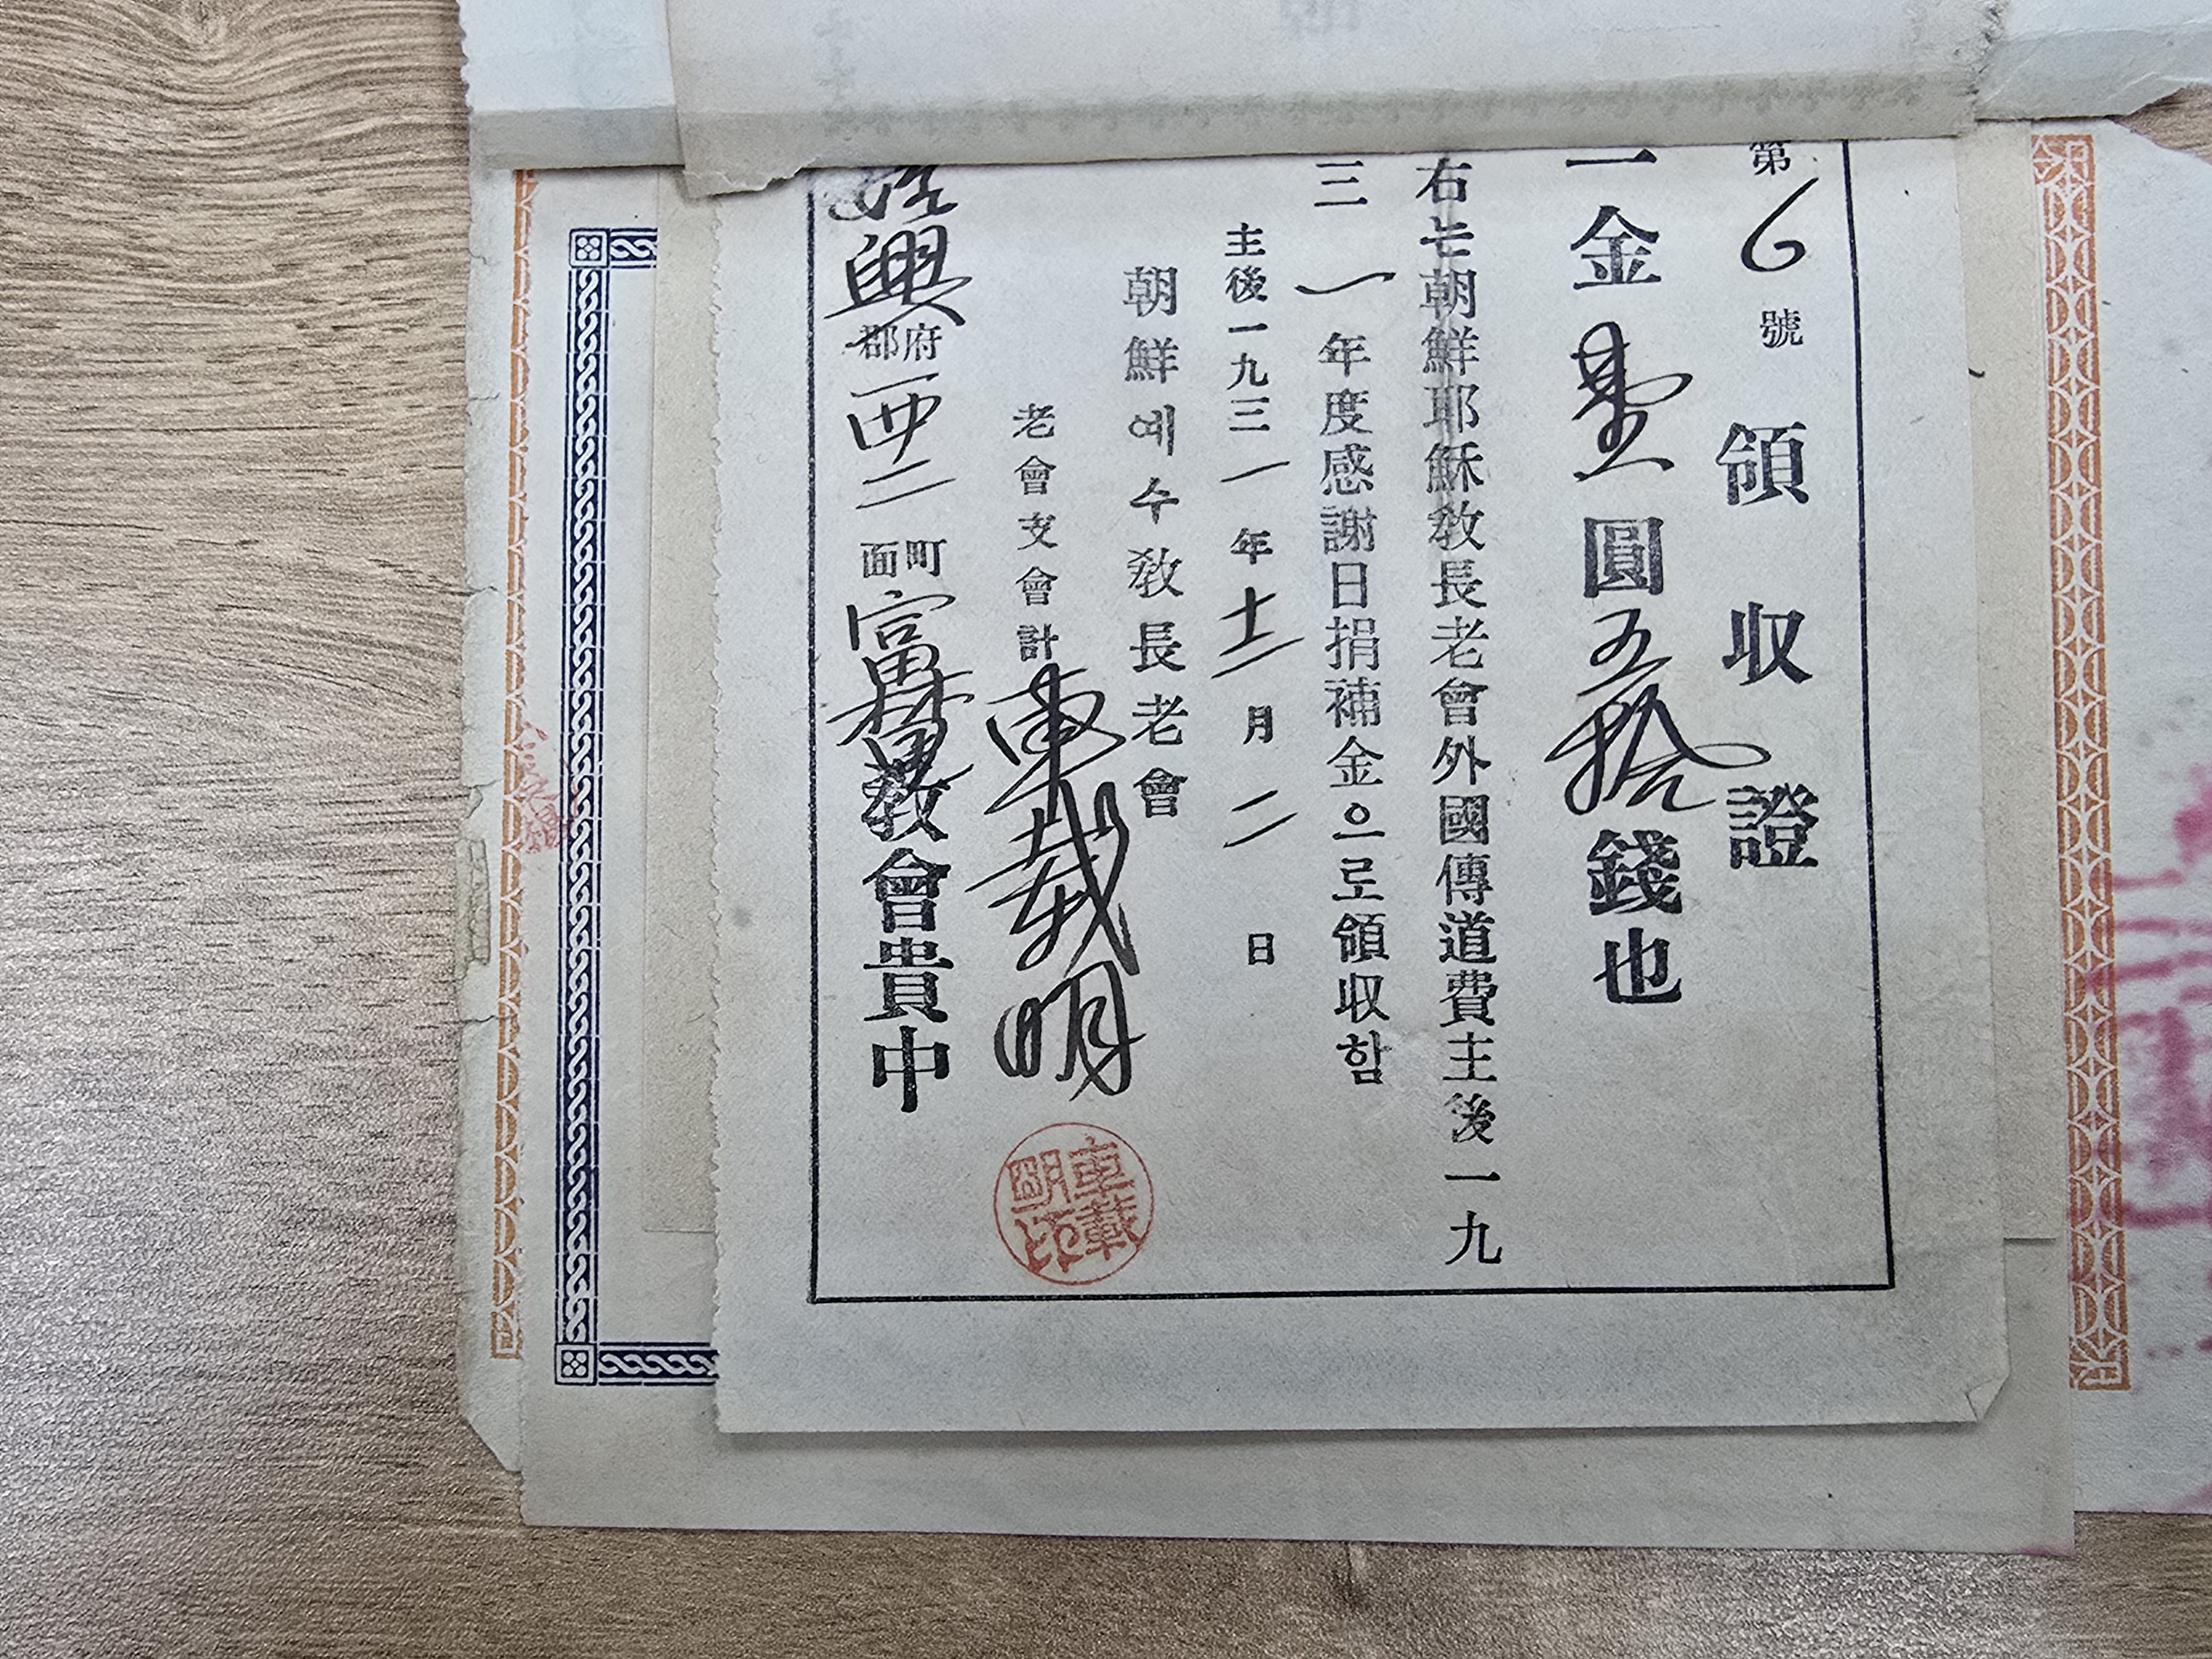 第6號
領收證
一金壹圓五拾錢也
右는朝鮮耶穌敎長老會外國傳道費主後一九
三一年度感謝日捐補金으로領収함
主後一九三一年十二月二日
朝鮮예수敎長老會
老會支會計車載明
興府郡西二町面富林里敎會貴中
車載明印